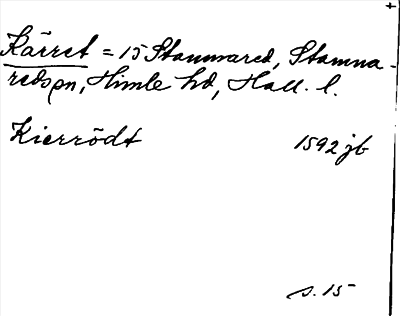 Kärret = 15 Stamnared, Stamna-
reds sn, Himle hd, Hall. l.
Kierrödt 1592 jb
s. 15